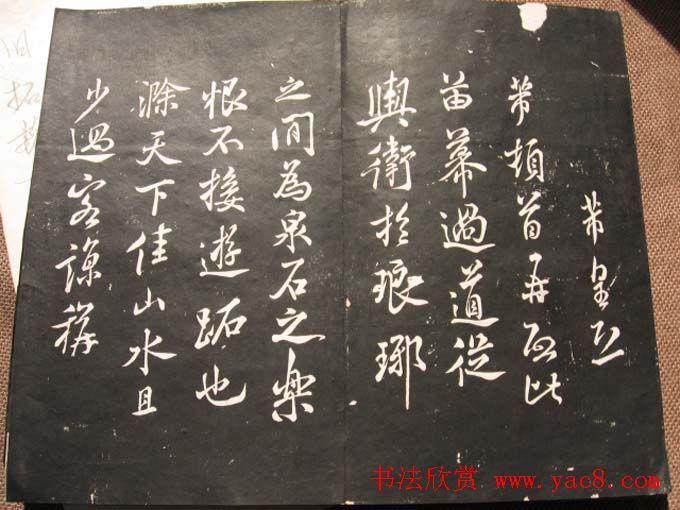 芾皇恐
芾頓首再啟比
苗幕過道從
輿衛於琅琊
之間為泉石之樂
恨不接遊跖也
滁天下佳山水且
少過客諒稱
旧拓
书法欣赏 www.yac8.com